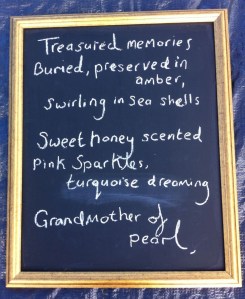 Treasured memories
Buried, preserved in
amber,
swirling in sea shells
Sweet honey scented
Pink Sparkles,
turquoise dreaming
Grandmother of
pearl.